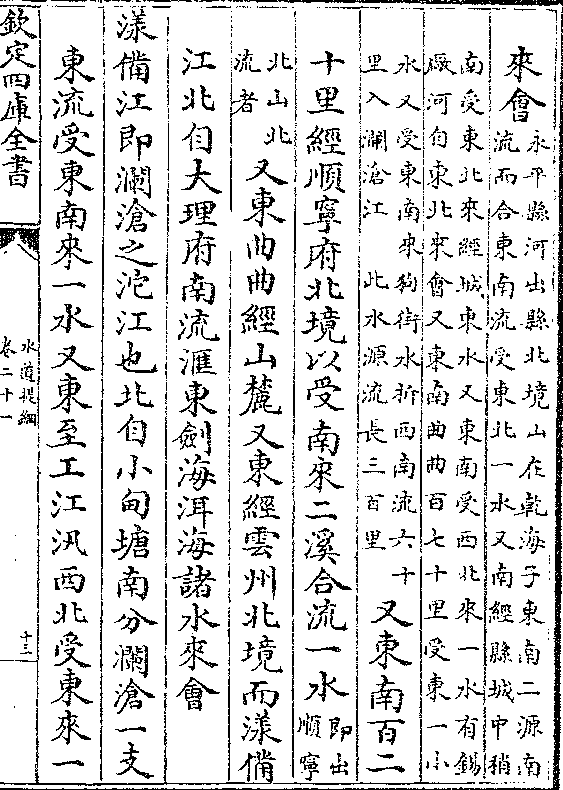 來會永平縣河出縣北境山在乾海子東南二源南
流而合東南流受東北一水又南經縣城中稍
南受東北來經城東水又東南受西北來一水有錫
廠河自東北來會又東南曲曲百七十里受東一小
水又受東南來狗街水折西南流六十
里入瀾滄江 此水源流長三百里又東南百二
十里經順寧府北境以受南來二溪合流一水即出
順寧
北山北
流者又東曲曲經山麓又東經雲州北境而漾備
江北自大理府南流滙東劍海洱海諸水來會
漾備江即瀾滄之沱江也北自小甸塘南分瀾滄一支
東流受東南來一水又東至工江汛西北受東來一
欽定四庫全書
水道提綱
卷二十一
十三